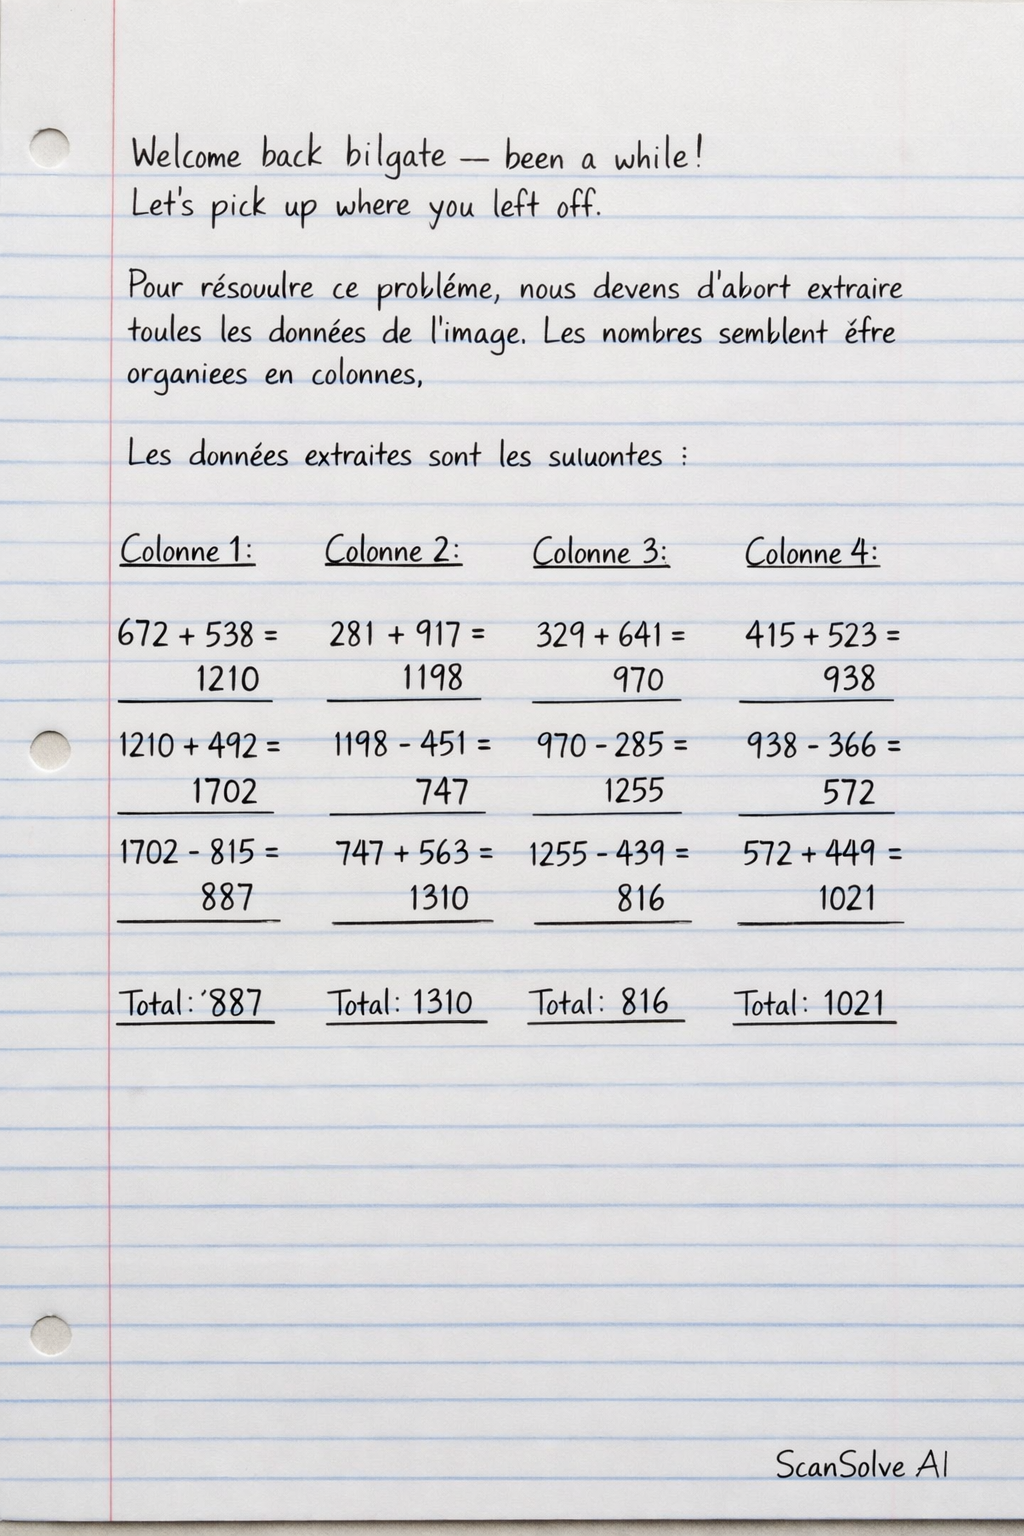 Welcome back bilgate — been a while!
Let's pick up where you left off.
Pour résouulre ce probléme, nous devens d'abort extraire
toules les données de l'image. Les nombres semblent éfre
organiees en colonnes,
Les données extraites sont les suluontes :
Colonne 1: Colonne 2: Colonne 3: Colonne 4:
672 + 538 = 281 + 917 = 329 + 641 = 415 + 523 =
1210 1198 970 938
1210 + 492 = 1198 - 451 = 970 - 285 = 938 - 366 =
1702 747 1255 572
1702 - 815 = 747 + 563 = 1255 - 439 = 572 + 449 =
887 1310 816 1021
Total: '887 Total: 1310 Total: 816 Total: 1021
ScanSolve AI